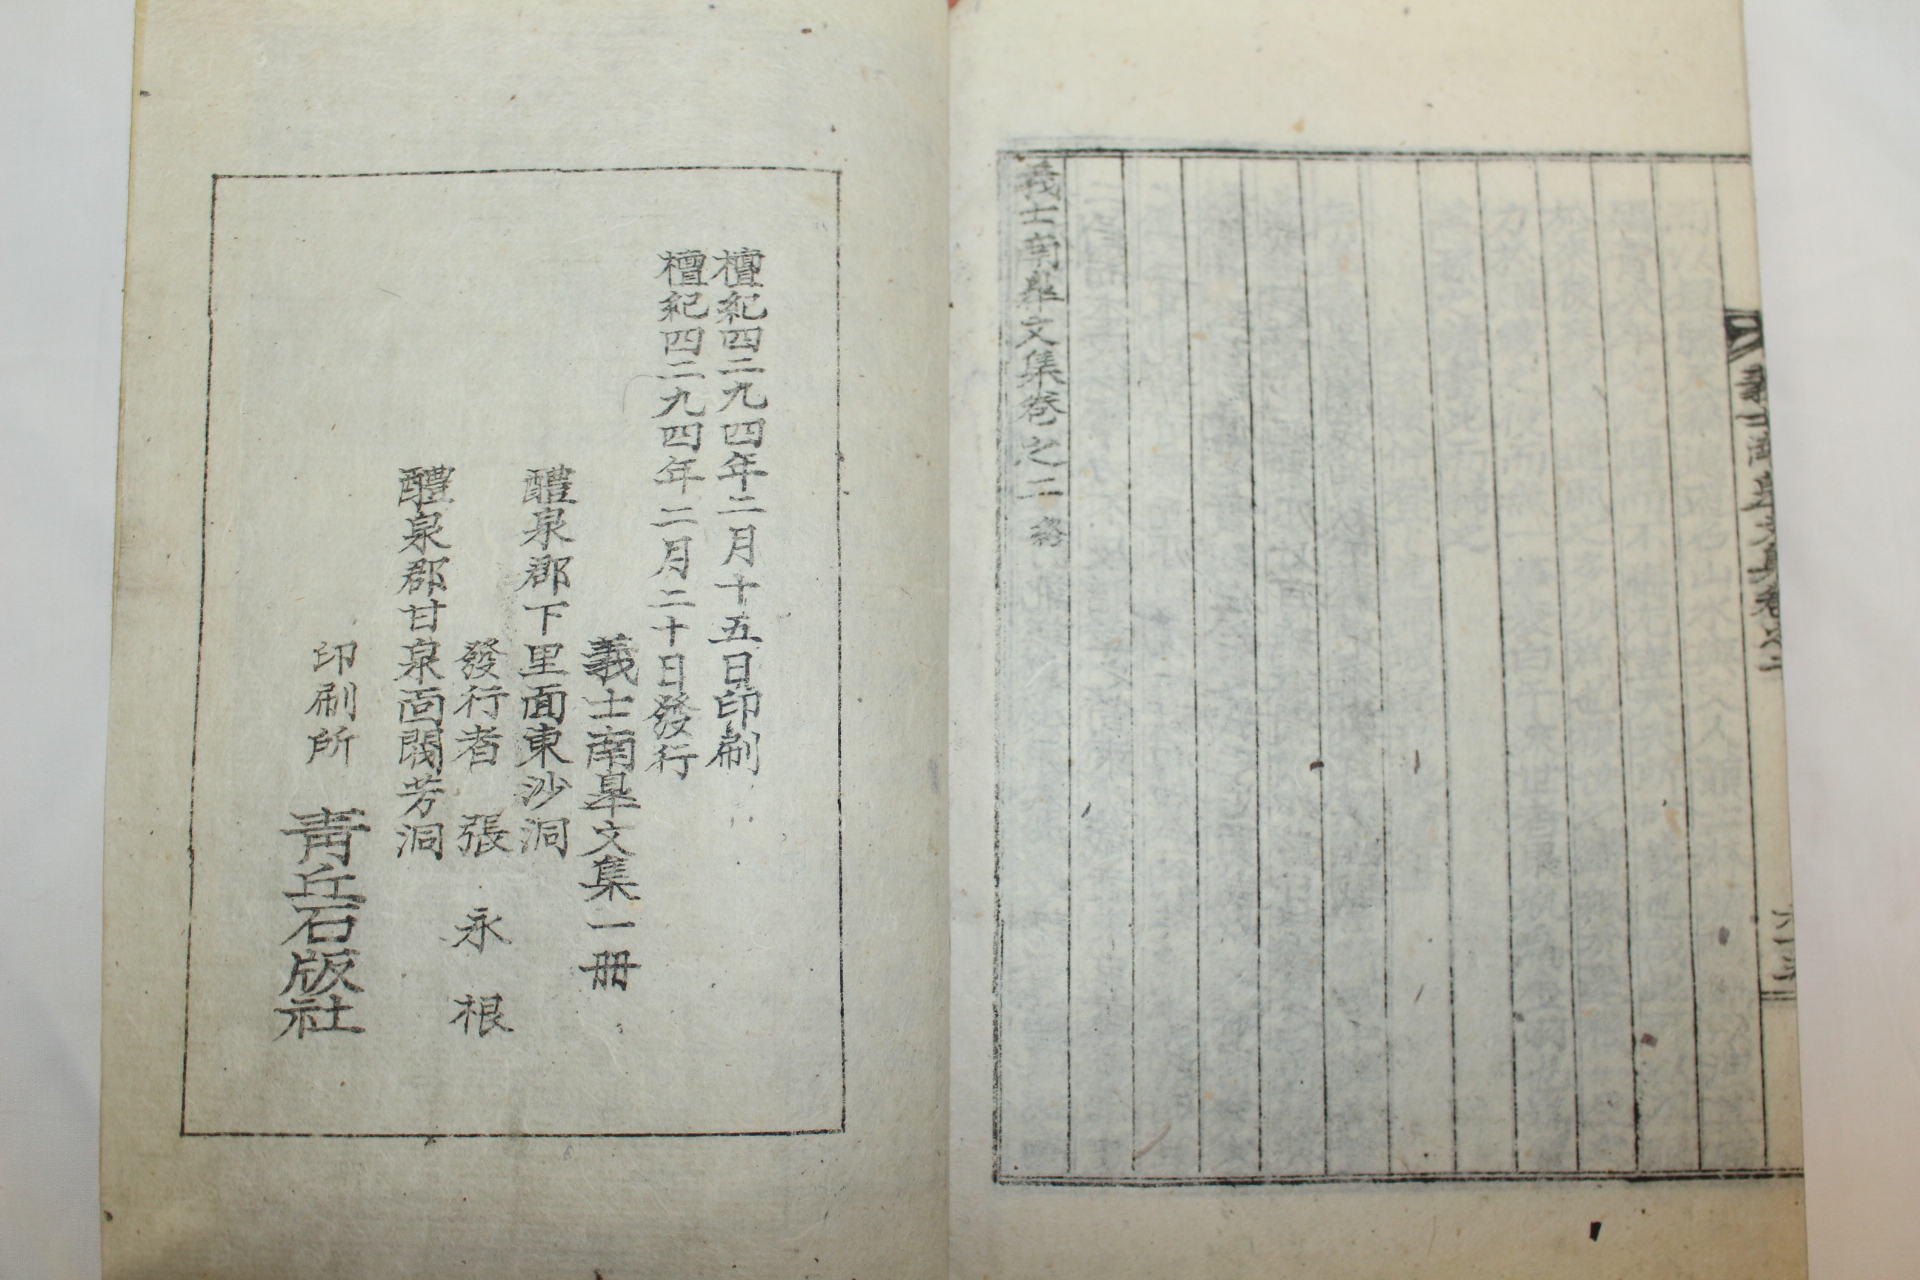 義士南皐文集卷之二終
檀紀四二九四年二月十五日印刷
檀紀四二九四年二月二十日發行
義士南皐文集一冊
醴泉郡下里面東沙洞
發行者 張永根
醴泉郡甘泉面閥芳洞
印刷所 靑丘石版社